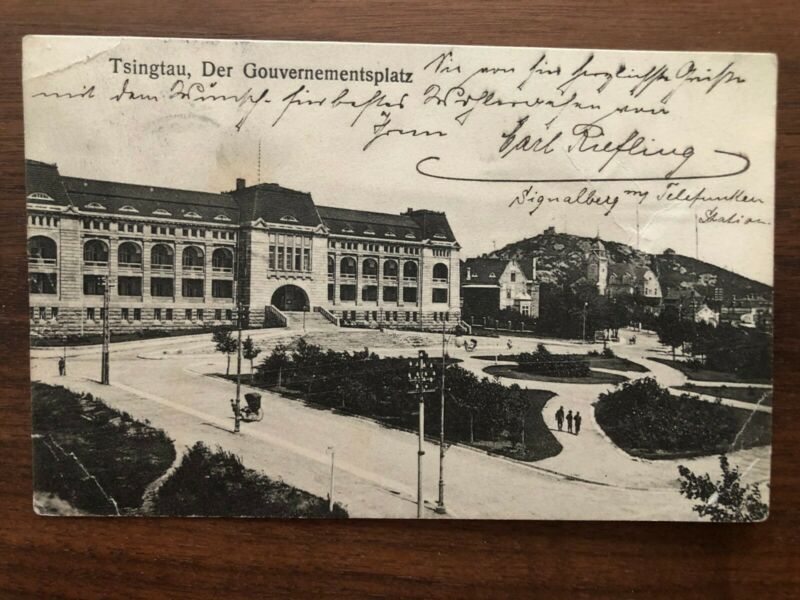 Tsingtau, Der Gouvernementsplatz
Sie von hier herzlichste Grüße
mit dem Wunsch für bestes Wohlergehen von
Ihrem Carl Riefling
Signalberg m/ Telefunken
Station.